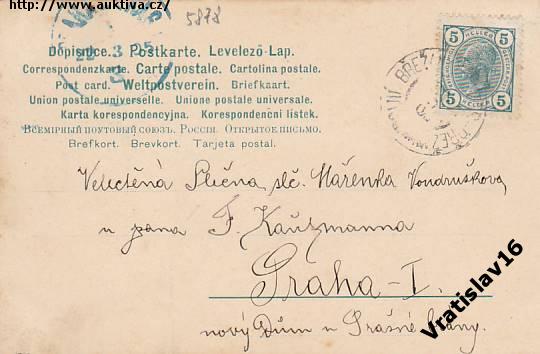 http://www.auktiva.cz/
5878
22 3 05
5 HELLER 5
5 HELLER 5
Dopisnice. Postkarte. Levelező-Lap.
Correspondenzkarte. Carte postale. Cartolina postale.
Post card. Weltpostverein. Briefkaart.
Union postale universelle. Unione postale universale.
Karta korespondencyjna. Korespondenční lístek.
Всемірный почтовый союзъ. Россія. Открытое письмо.
Brefkort. Brevkort. Tarjeta postal.
Velectěná Slečna slč. Mařenka Vondrušková
u pana F. Kaufzmanna
Praha - I.
nový Dům u Prašné brány.
Vratislav16